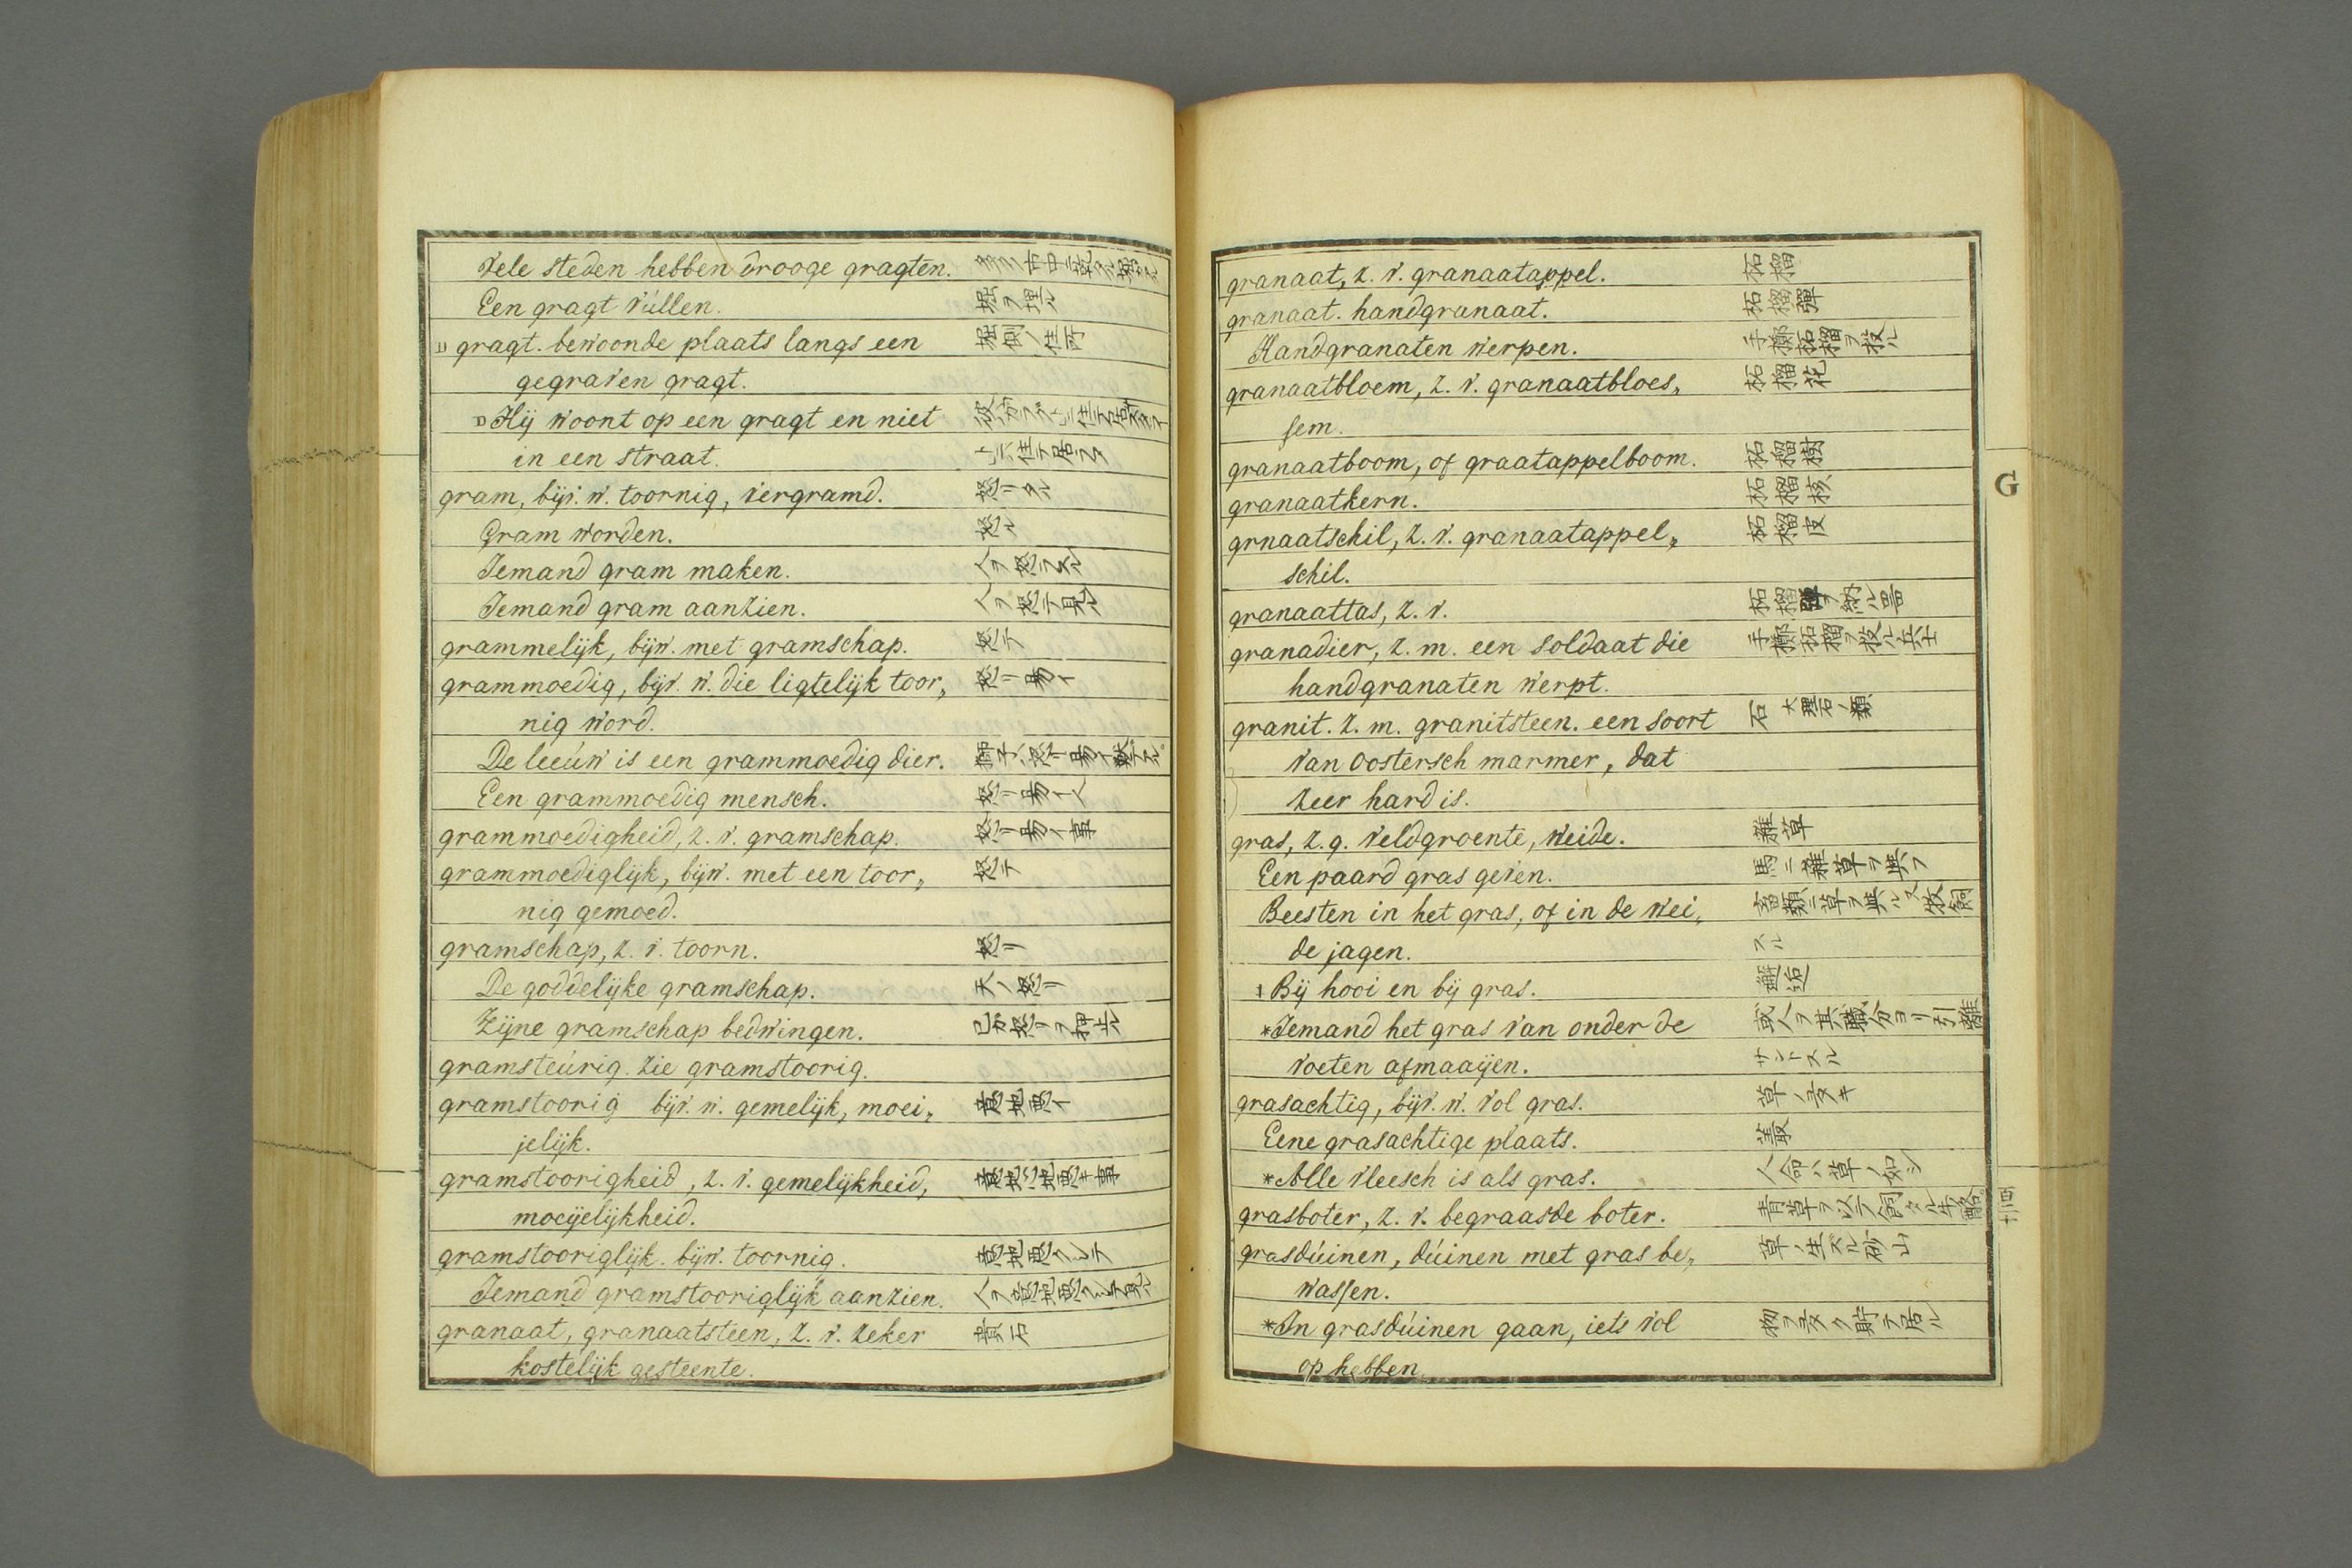 Vele steden hebben drooge gragten. 多クノ市中ニ乾タル堀アル
Een gragt vúllen. 堀ヲ埋ル
gragt. bewoonde plaats langs een 堀側ノ住所
gegraven gragt.
Hij woont op een gragt en niet
in een straat.
gram, bijv. w. toornig, vergramd. 怒リタル
Gram worden. 怒ル
Iemand gram maken. 人ヲ怒ラスル
Iemand gram aanzien. 人ヲ怒テ見ル
grammelijk, bijw. met gramschap. 怒テ
grammoedig, bijv. w. die ligtelijk toor„ 怒リ易イ
nig word.
De leeúw is een grammoedig dier. 獅子ハ怒リ易イ獣テアル。
Een grammoedig mensch. 怒リ易イ人
grammoedigheid, z. v. gramschap. 怒リ易イ事
grammoediglijk, bijw. met een toor„ 怒テ
nig gemoed.
gramschap, z. v. toorn. 怒リ
De goddelijke gramschap. 天ノ怒リ
Zijne gramschap bedwingen. 己カ怒リヲ押止ル
gramsteúrig. zie gramstoorig.
gramstoorig bijv. w. gemelijk, moei„ 意地悪イ
jelijk.
gramstoorigheid, z. v. gemelijkheid,
moeijelijkheid.
gramstooriglijk. bijw. toornig. 意地悪クシテ
Iemand gramstooriglijk aanzien. 人ヲ意地悪クシテ見ル
granaat, granaatsteen, z. v. zeker 寶石
kostelijk gesteente.
granaat, z. v. granaatappel. 柘榴
granaat. handgranaat. 柘榴彈
Handgranaten werpen. 手擲柘榴ヲ投ル
granaatbloem, z. v. granaatbloes„ 柘榴花
sem.
granaatboom, of graatappelboom. 柘榴樹
granaatkern. 柘榴核
grnaatschil, z. v. granaatappel„ 柘榴皮
schil.
granaattas, z. v. 柘榴彈ヲ納ル
granadier, z. m. een soldaat die 手擲柘榴ヲ投ル兵士
handgranaten werpt.
granit. z. m. granitsteen. een soort 石 大理石ノ類
van oostersch marmer, dat
zeer hard is.
gras, z. g. veldgroente, weide. 雜草
Een paard gras geven. 馬ニ雜草ヲ與フ
Beesten in het gras, of in de wei„ 畜類ニ草ヲ與ル又牧飼
de jagen. スル
‡ Bij hooi en bij gras. 邂逅
*Iemand het gras van onder de 或人ヲ其職分ヨリ引離
voeten afmaaijen. サントスル
grasachtig, bijv. w. vol gras. 草ノ多キ
Eene grasachtige plaats. 叢
*Alle vleesch is als gras. 人命ハ草ノ如シ
grasboter, z. v. begraasde boter. 青草ヲ以テ飼タル牛酪。
grasdúinen, dúinen met gras be„ 草ノ生ズル砂山
wassen.
*In grasdúinen gaan, iets vol 物ヲ多ク貯テ居ル
op hebben.
G